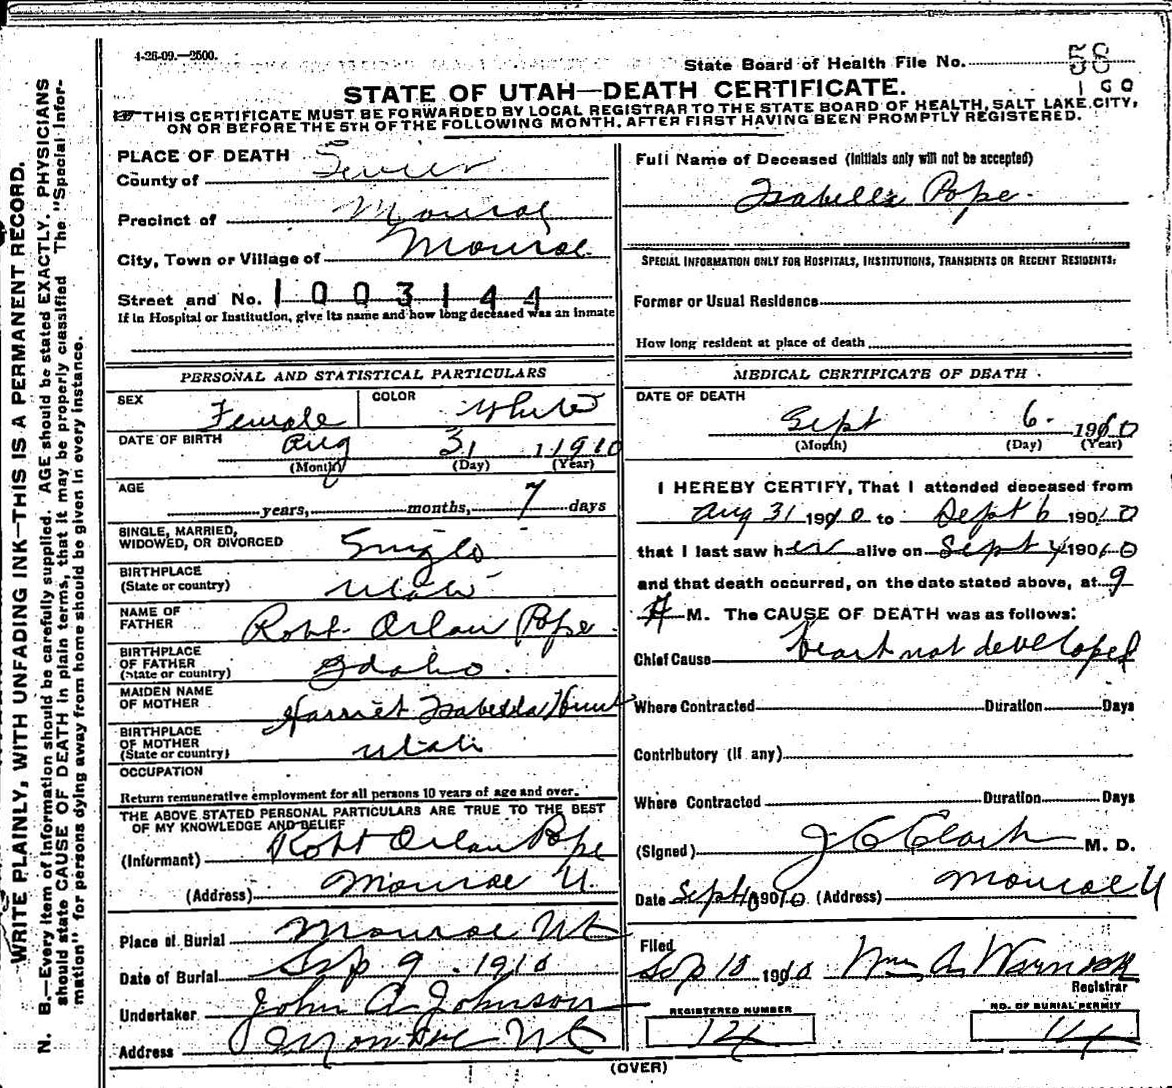 4-26-09.—2500.
State Board of Health File No. 58
100
STATE OF UTAH—DEATH CERTIFICATE.
THIS CERTIFICATE MUST BE FORWARDED BY LOCAL REGISTRAR TO THE STATE BOARD OF HEALTH, SALT LAKE CITY,
ON OR BEFORE THE 5TH OF THE FOLLOWING MONTH, AFTER FIRST HAVING BEEN PROMPTLY REGISTERED.
WRITE PLAINLY, WITH UNFADING INK—THIS IS A PERMANENT RECORD.
N. B.—Every item of information should be carefully supplied. AGE should be stated EXACTLY. PHYSICIANS
should state CAUSE OF DEATH in plain terms, that it may be properly classified. The "Special Infor-
mation" for persons dying away from home should be given in every instance.
PLACE OF DEATH
County of Sevier
Precinct of Monroe
City, Town or Village of Monroe
Street and No. 1003144
If in Hospital or Institution, give its name and how long deceased was an inmate
PERSONAL AND STATISTICAL PARTICULARS
SEX Female COLOR White
DATE OF BIRTH Aug 31 1910
(Month) (Day) (Year)
AGE
years, months, 7 days
SINGLE, MARRIED,
WIDOWED, OR DIVORCED Single
BIRTHPLACE
(State or country) Utah
NAME OF
FATHER Robt. Orlau Pope
BIRTHPLACE
OF FATHER
(State or country) Idaho.
MAIDEN NAME
OF MOTHER Harriet Isabella Hunt
BIRTHPLACE
OF MOTHER
(State or country) Utah
OCCUPATION
Return remunerative employment for all persons 10 years of age and over.
THE ABOVE STATED PERSONAL PARTICULARS ARE TRUE TO THE BEST
OF MY KNOWLEDGE AND BELIEF
(Informant) Robt Orlau Pope
(Address) Monroe U.
Place of Burial Monroe Ut
Date of Burial Sep 9. 1910
Undertaker John A Johnson
Address Monroe Ut
Full Name of Deceased (Initials only will not be accepted)
Isabella Pope.
SPECIAL INFORMATION ONLY FOR HOSPITALS, INSTITUTIONS, TRANSIENTS OR RECENT RESIDENTS:
Former or Usual Residence
How long resident at place of death
MEDICAL CERTIFICATE OF DEATH
DATE OF DEATH
Sept 6. 1910
(Month) (Day) (Year)
I HEREBY CERTIFY, That I attended deceased from
Aug 31 1910 to Sept 6 1910
that I last saw her alive on Sept 4 1910
and that death occurred, on the date stated above, at 9
A M. The CAUSE OF DEATH was as follows:
Chief Cause heart not developed
Where Contracted Duration Days
Contributory (if any)
Where Contracted Duration Days
(Signed) J C Clark M. D.
Date Sept 1910 (Address) Monroe U
Filed
Sep 10 1910 Wm A Warnock
Registrar
REGISTERED NUMBER
NO. OF BURIAL PERMIT
14
14
(OVER)